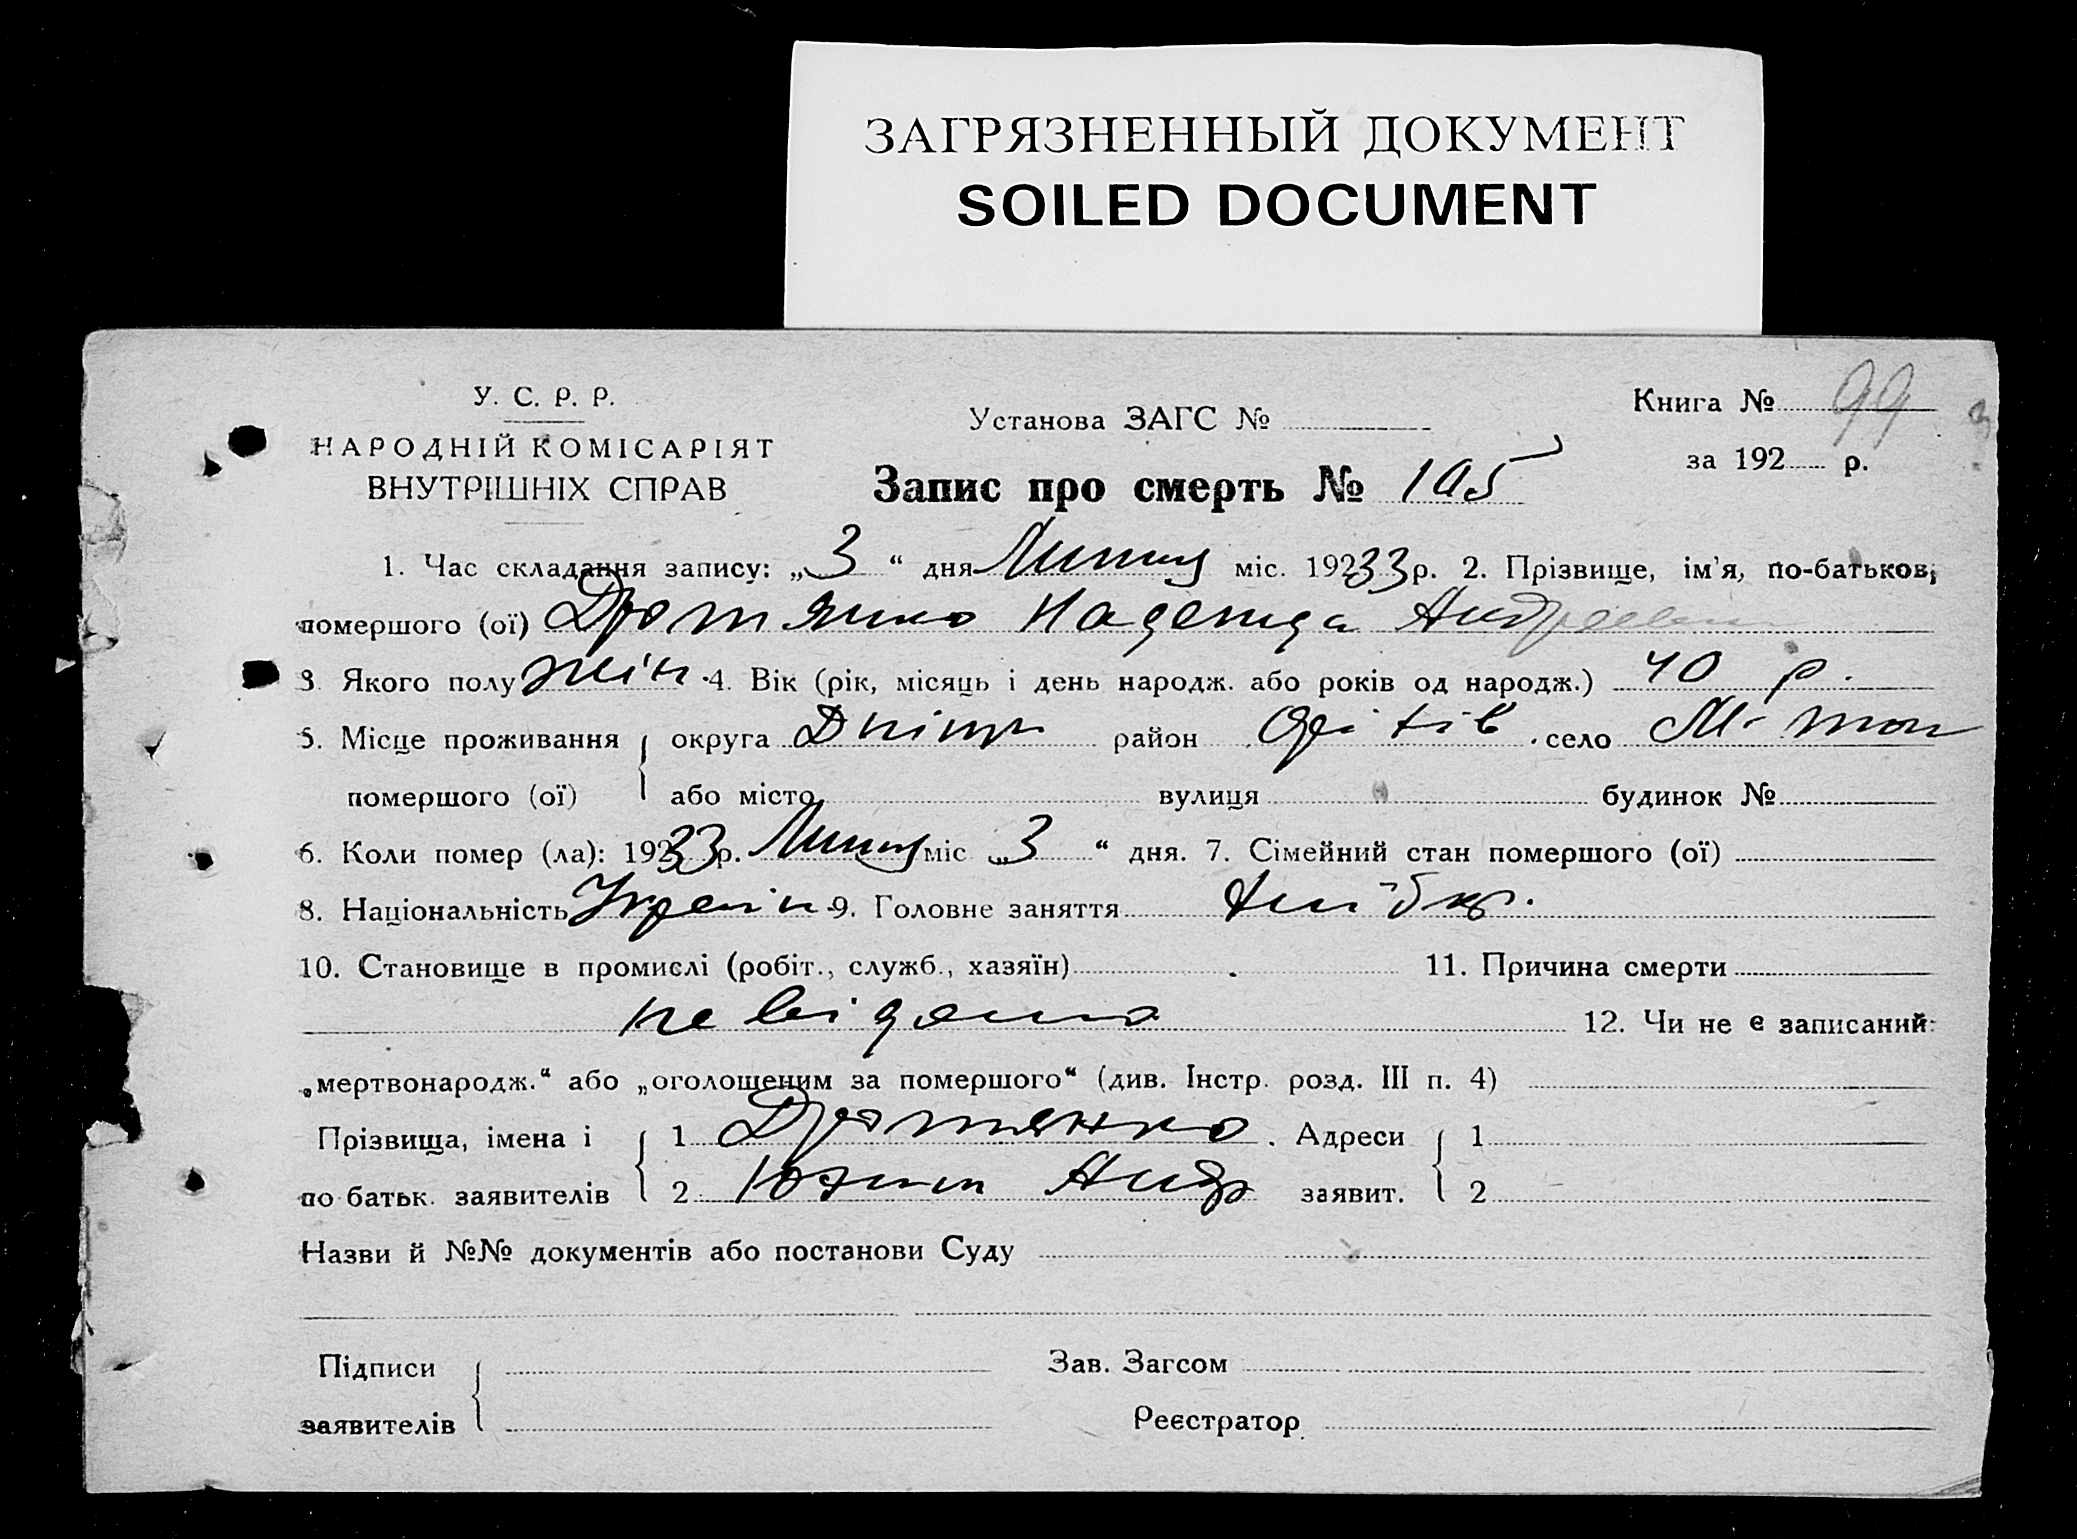 ЗАГРЯЗНЕННЫЙ ДОКУМЕНТ
SOILED DOCUMENT
У. С. Р. Р.
НАРОДНІЙ КОМІСАРІЯТ
ВНУТРІШНІХ СПРАВ
Установа ЗАГС №
Книга № 99
за 192 р.
Запис про смерть № 105
1. Час складання запису: „3“ дня Липця міс. 192 33 р. 2. Прізвище, ім'я, по-батьков,
помершого (ої) Надежда Андреевн
3. Якого полу жін. 4. Вік (рік, місяць і день народж. або років од народж.) 40 р.
5. Місце проживання округа Дніпр район село
помершого (ої) або місто вулиця будинок №
6. Коли помер (ла): 192 33 р. Липця міс „3“ дня. 7. Сімейний стан помершого (ої)
8. Національність Україн 9. Головне заняття
10. Становище в промислі (робіт., служб., хазяїн) 11. Причина смерти
невідома 12. Чи не є записаний:
„мертвонародж.“ або „оголошеним за помершого“ (див. Інстр. розд. III п. 4)
Прізвища, імена і 1 Адреси 1
по батьк. заявителів 2 Андр заявит. 2
Назви й №№ документів або постанови Суду
Підписи Зав. Загсом
заявителів Реєстратор